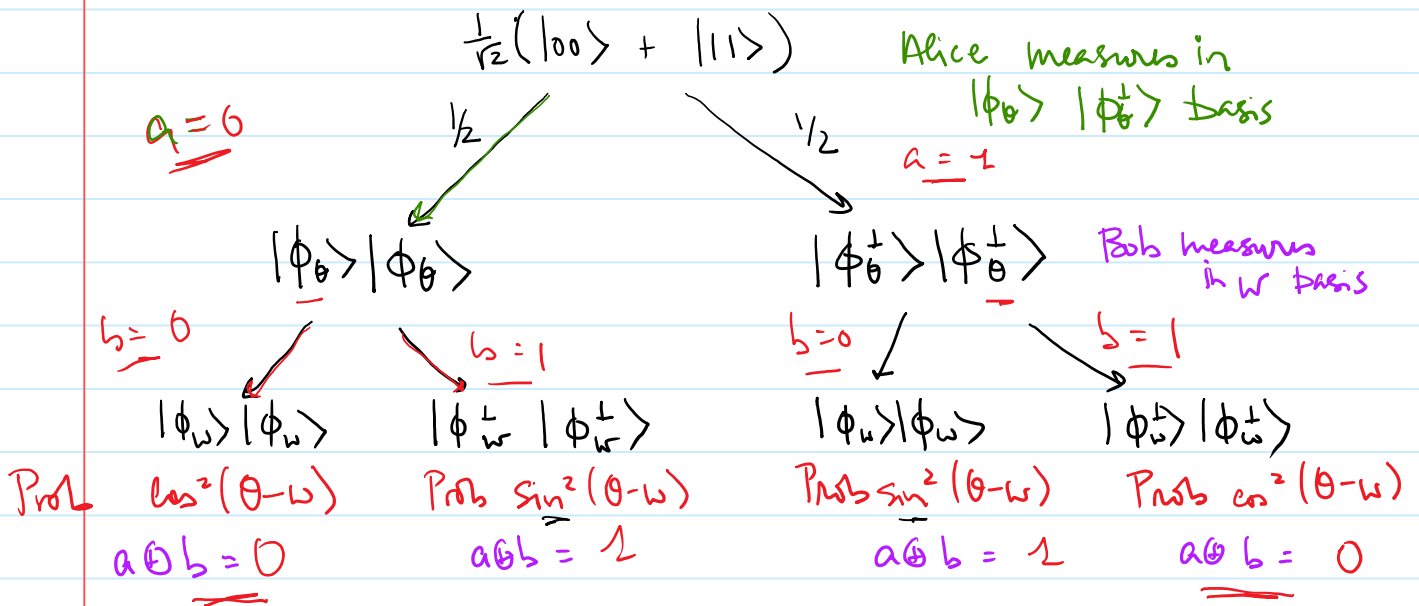 1/√2 (|00⟩ + |11⟩)
Alice measures in
|ϕ_θ⟩ |ϕ_θ^⊥⟩ basis
a = 0
1/2
1/2
a = 1
|ϕ_θ⟩|ϕ_θ⟩
|ϕ_θ^⊥⟩|ϕ_θ^⊥⟩
Bob measures
in w basis
b = 0
b = 1
b = 0
b = 1
|ϕ_w⟩|ϕ_w⟩
|ϕ_w^⊥ |ϕ_w^⊥⟩
|ϕ_w⟩|ϕ_w⟩
|ϕ_w^⊥⟩|ϕ_w^⊥⟩
Prob cos²(θ-w)
Prob sin²(θ-w)
Prob sin²(θ-w)
Prob cos²(θ-w)
a⊕b = 0
a⊕b = 1
a⊕b = 1
a⊕b = 0